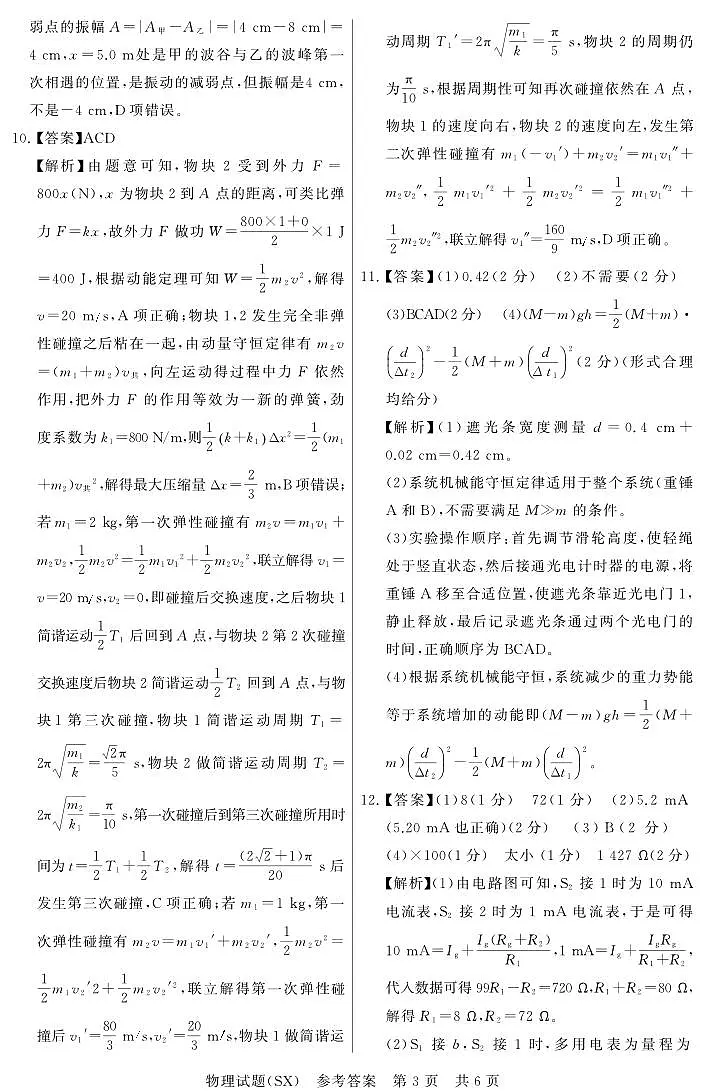 弱点的振幅 A=|A甲-A乙|=|4 cm-8 cm|=
4 cm,x=5.0 m处是甲的波谷与乙的波峰第一
次相遇的位置,是振动的减弱点,但振幅是4 cm,
不是-4 cm,D项错误。
10.【答案】ACD
【解析】由题意可知,物块 2 受到外力 F=
800x(N),x 为物块 2 到 A 点的距离,可类比弹
力 F=kx,故外力 F 做功 W=\frac{800×1+0}{2}×1 J
=400 J,根据动能定理可知 W=\frac{1}{2}m₂v²,解得
v=20 m/s,A 项正确;物块 1,2 发生完全非弹
性碰撞之后粘在一起,由动量守恒定律有 m₂v
=(m₁+m₂)v共,向左运动得过程中力 F 依然
作用,把外力 F 的作用等效为一新的弹簧,劲
度系数为 k₁=800 N/m,则\frac{1}{2}(k+k₁)Δx²=\frac{1}{2}(m₁
+m₂)v共²,解得最大压缩量 Δx=\frac{2}{3} m,B项错误;
若 m₁=2 kg,第一次弹性碰撞有 m₂v=m₁v₁+
m₂v₂,\frac{1}{2}m₂v²=\frac{1}{2}m₁v₁²+\frac{1}{2}m₂v₂²,联立解得 v₁=
v=20 m/s,v₂=0,即碰撞后交换速度,之后物块 1
简谐运动\frac{1}{2}T₁ 后回到 A 点,与物块 2 第 2 次碰撞
交换速度后物块 2 简谐运动\frac{1}{2}T₂ 回到 A 点,与物
块1 第三次碰撞,物块 1 简谐运动周期 T₁=
2π\sqrt{\frac{m₁}{k}}=\frac{\sqrt{2}π}{5} s,物块 2 做简谐运动周期 T₂=
2π\sqrt{\frac{m₂}{k₁}}=\frac{π}{10} s,第一次碰撞后到第三次碰撞所用时
间为 t=\frac{1}{2}T₁+\frac{1}{2}T₂,解得 t=\frac{(2\sqrt{2}+1)π}{20} s 后
发生第三次碰撞,C 项正确;若 m₁=1 kg,第一
次弹性碰撞有 m₂v=m₁v₁′+m₂v₂′,\frac{1}{2}m₂v²=
\frac{1}{2}m₁v₁′2+\frac{1}{2}m₂v₂′²,联立解得第一次弹性碰
撞后 v₁′=\frac{80}{3} m/s,v₂′=\frac{20}{3} m/s,物块 1 做简谐运
动周期 T₁′=2π\sqrt{\frac{m₁}{k}}=\frac{π}{5} s,物块 2 的周期仍
为\frac{π}{10} s,根据周期性可知再次碰撞依然在 A 点,
物块 1 的速度向右,物块 2 的速度向左,发生第
二次弹性碰撞有 m₁(-v₁′)+m₂v₂′=m₁v₁″+
m₂v₂″,\frac{1}{2} m₁v₁′²+\frac{1}{2} m₂v₂′²=\frac{1}{2} m₁v₁″²+
\frac{1}{2}m₂v₂″²,联立解得 v₁″=\frac{160}{9} m/s,D项正确。
11.【答案】(1)0.42(2 分) (2)不需要(2 分)
(3)BCAD(2分) (4)(M-m)gh=\frac{1}{2}(M+m)·
(\frac{d}{Δt₂})²-\frac{1}{2}(M+m)(\frac{d}{Δt₁})²(2 分)(形式合理
均给分)
【解析】(1)遮光条宽度测量 d=0.4 cm+
0.02 cm=0.42 cm。
(2)系统机械能守恒定律适用于整个系统(重锤
A 和 B),不需要满足 M≫m 的条件。
(3)实验操作顺序:首先调节滑轮高度,使轻绳
处于竖直状态,然后接通光电计时器的电源,将
重锤 A 移至合适位置,使遮光条靠近光电门 1,
静止释放,最后记录遮光条通过两个光电门的
时间,正确顺序为 BCAD。
(4)根据系统机械能守恒,系统减少的重力势能
等于系统增加的动能即(M-m)gh=\frac{1}{2}(M+
m)(\frac{d}{Δt₂})²-\frac{1}{2}(M+m)(\frac{d}{Δt₁})²。
12.【答案】(1)8(1 分) 72(1 分) (2)5.2 mA
(5.20 mA也正确)(2分) (3) B ( 2 分)
(4)×100(1分) 太小 (1分) 1 427 Ω(2分)
【解析】(1)由电路图可知,S₂ 接 1 时为 10 mA
电流表,S₂ 接 2 时为 1 mA 电流表,于是可得
10 mA=I_g+\frac{I_g(R_g+R₂)}{R₁},1 mA=I_g+\frac{I_gR_g}{R₁+R₂},
代入数据可得 99R₁-R₂=720 Ω,R₁+R₂=80 Ω,
解得 R₁=8 Ω,R₂=72 Ω。
(2)S₁ 接 b,S₂ 接 1 时,多用电表为量程为
物理试题(SX) 参考答案 第 3 页 共 6 页